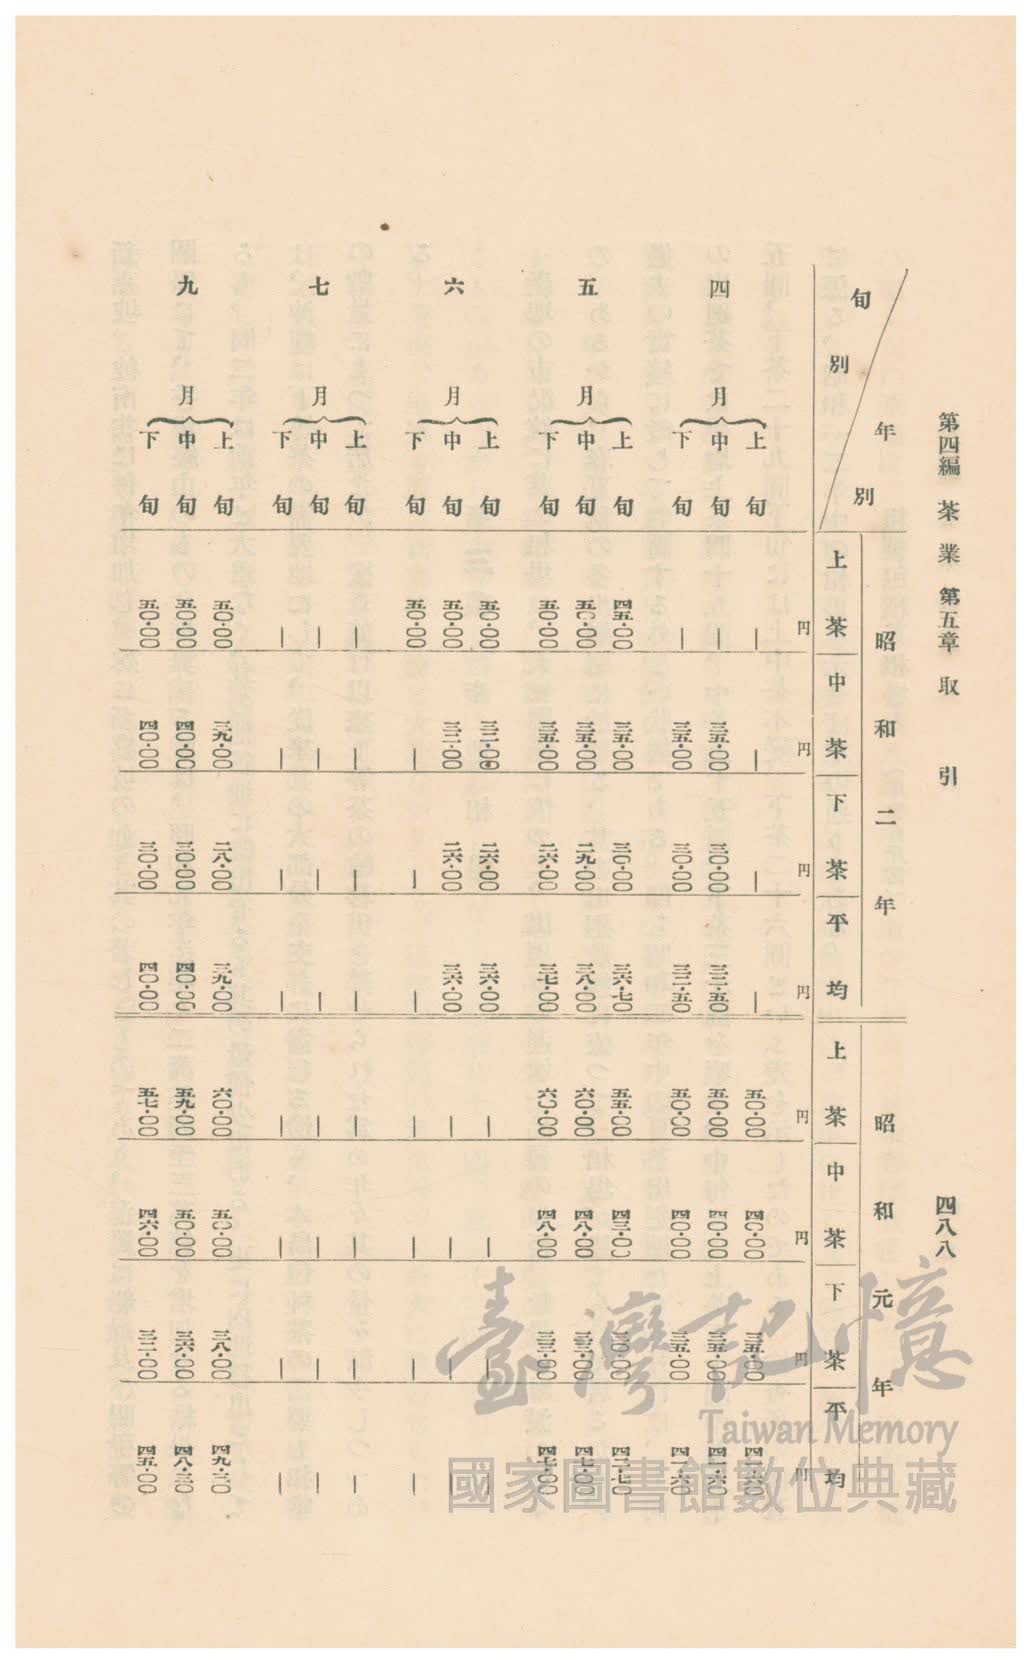 第四編 茶業 第五章 取引 四八八
年別 昭和二年 昭和元年
旬別 上茶 中茶 下茶 平均 上茶 中茶 下茶 平均
円 円 円 円 円 円 円 円
四月
上旬 — — — — 五〇・〇〇 四〇・〇〇 三五・〇〇 四一・六〇
中旬 — 三五・〇〇 三〇・〇〇 三二・五〇 五〇・〇〇 四〇・〇〇 三五・〇〇 四一・六〇
下旬 — 三五・〇〇 三〇・〇〇 三二・五〇 五〇・〇〇 四〇・〇〇 三五・〇〇 四一・六〇
五月
上旬 四五・〇〇 三五・〇〇 三〇・〇〇 三六・七〇 五五・〇〇 四三・〇〇 三〇・〇〇 四二・七〇
中旬 五〇・〇〇 三五・〇〇 二九・〇〇 三八・〇〇 六〇・〇〇 四八・〇〇 三三・〇〇 四七・〇〇
下旬 五〇・〇〇 三五・〇〇 二六・〇〇 三七・〇〇 六〇・〇〇 四八・〇〇 三三・〇〇 四七・〇〇
六月
上旬 五〇・〇〇 三二・〇〇 二六・〇〇 三六・〇〇 — — — —
中旬 五〇・〇〇 三二・〇〇 二六・〇〇 三六・〇〇 — — — —
下旬 五〇・〇〇 — — — — — — —
七月
上旬 — — — — — — — —
中旬 — — — — — — — —
下旬 — — — — — — — —
九月
上旬 五〇・〇〇 三九・〇〇 二八・〇〇 三九・〇〇 六〇・〇〇 五〇・〇〇 三八・〇〇 四九・三〇
中旬 五〇・〇〇 四〇・〇〇 三〇・〇〇 四〇・〇〇 五九・〇〇 五〇・〇〇 三六・〇〇 四八・三〇
下旬 五〇・〇〇 四〇・〇〇 三〇・〇〇 四〇・〇〇 五七・〇〇 四六・〇〇 三二・〇〇 四五・〇〇
臺灣記憶
Taiwan Memory
國家圖書館數位典藏